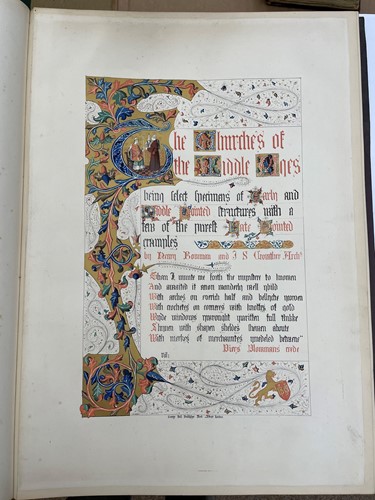 The Churches of
the Middle Ages
being select specimens of Early and
Middle Pointed structures with a
few of the purest Late Pointed
examples
by Henry Bowman and J S Crowther Archts
Than I munte me forth the mynstre to knowen
And awaited it anon wonderly well ybild
With arches on everich half and bellyche ycorven
With crochetes on corneres with knottes of gold
Wyde wyndowes ywrought ywritten full thikke
Shynen with shapen sheldes shewen aboute
With merkes of merchauntes ymedeled betwene
Piers Plowmans crede